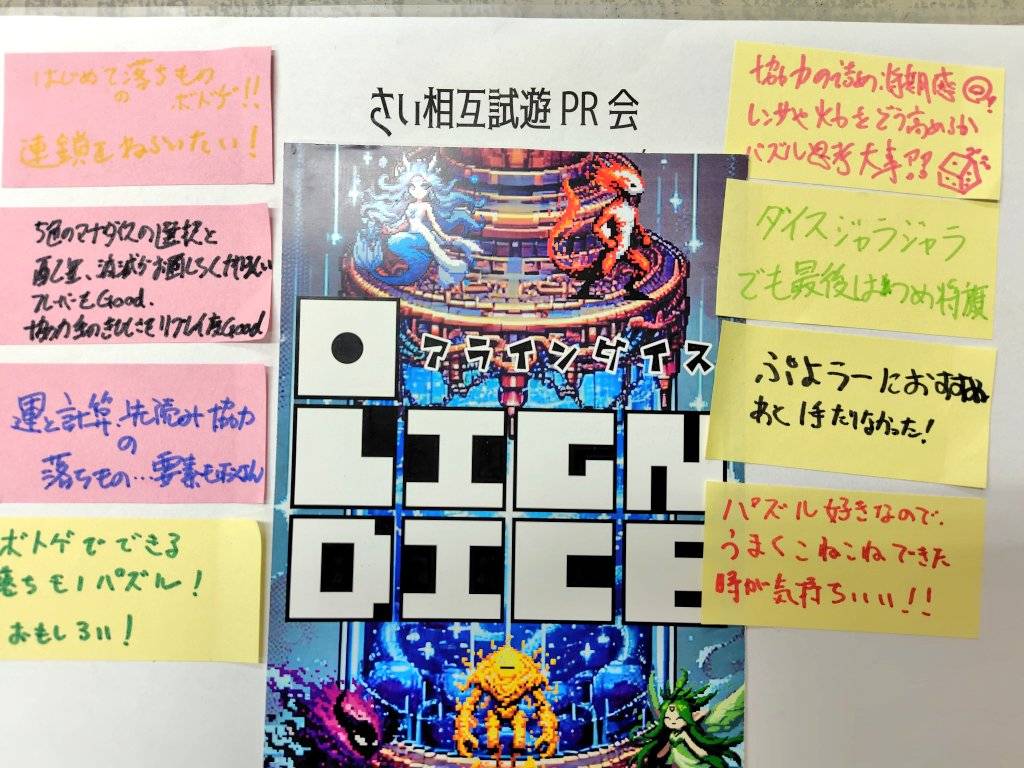 さい相互試遊PR会
はじめて落ちもの
の ボドゲ!!
連鎖をねらいたい!
5色のマナダイスの選択と
配置、消滅がお面しろく
フレーバーもGood.
協力金のきびしさもリプレイ度Good
運と計算、先読み 協力
の
落ちもの…要素もたくさん
ボドゲでできる
落ちものパズル!
おもしろい!
アラインダイス
LIGN
DICE
協力の詰め将棋感
レンサや火力をどう高めるか
パズル思考大事!?
ダイスジャラジャラ
でも最後はつめ将棋
ぷよラーにおすすめ
あと1手たりなかった!
パズル好きなので、
うまくこねこねできた
時が気持ちいい!!